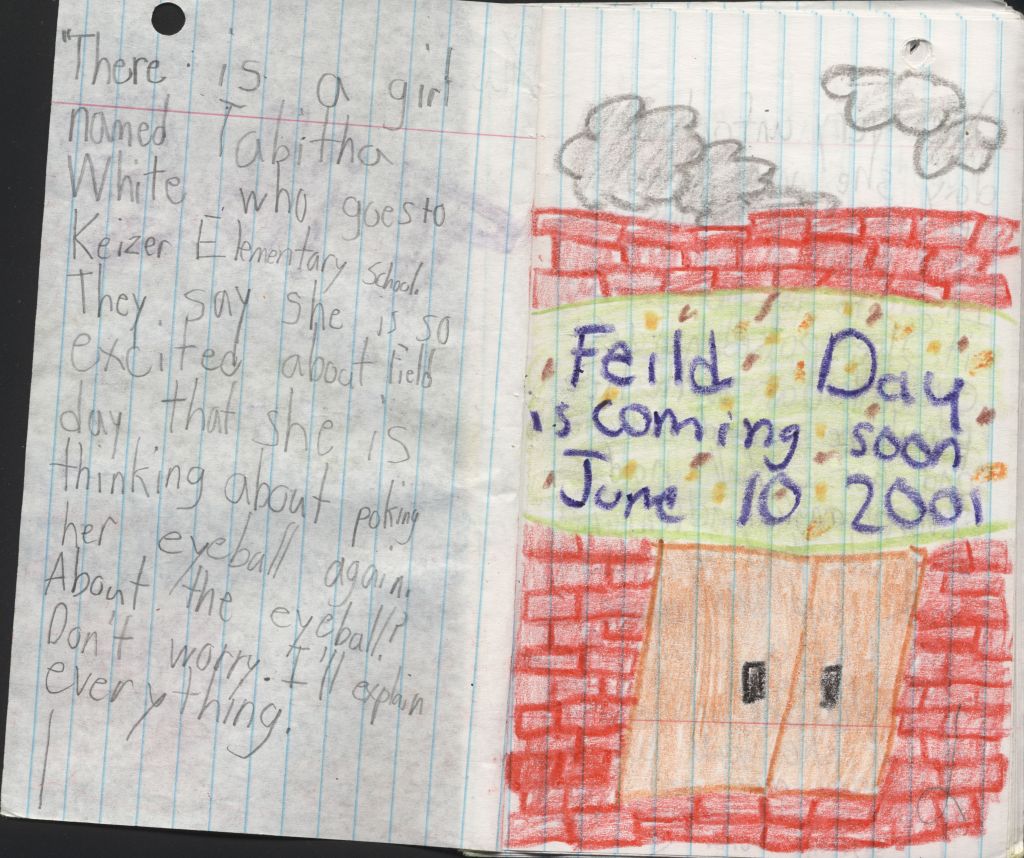 "There is a girl
named Tabitha
White who goes to
Keizer Elementary School.
They say she is so
excited about field
day that she is
thinking about poking
her eyeball again.
About the eyeball?
Don't worry. I'll explain
everything.
Feild Day
is coming soon
June 10 2001